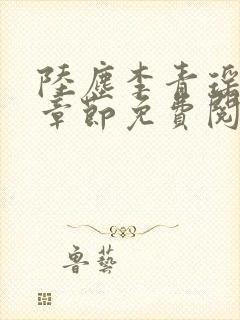 陸塵李青瑤
章節免費閱
魯藝